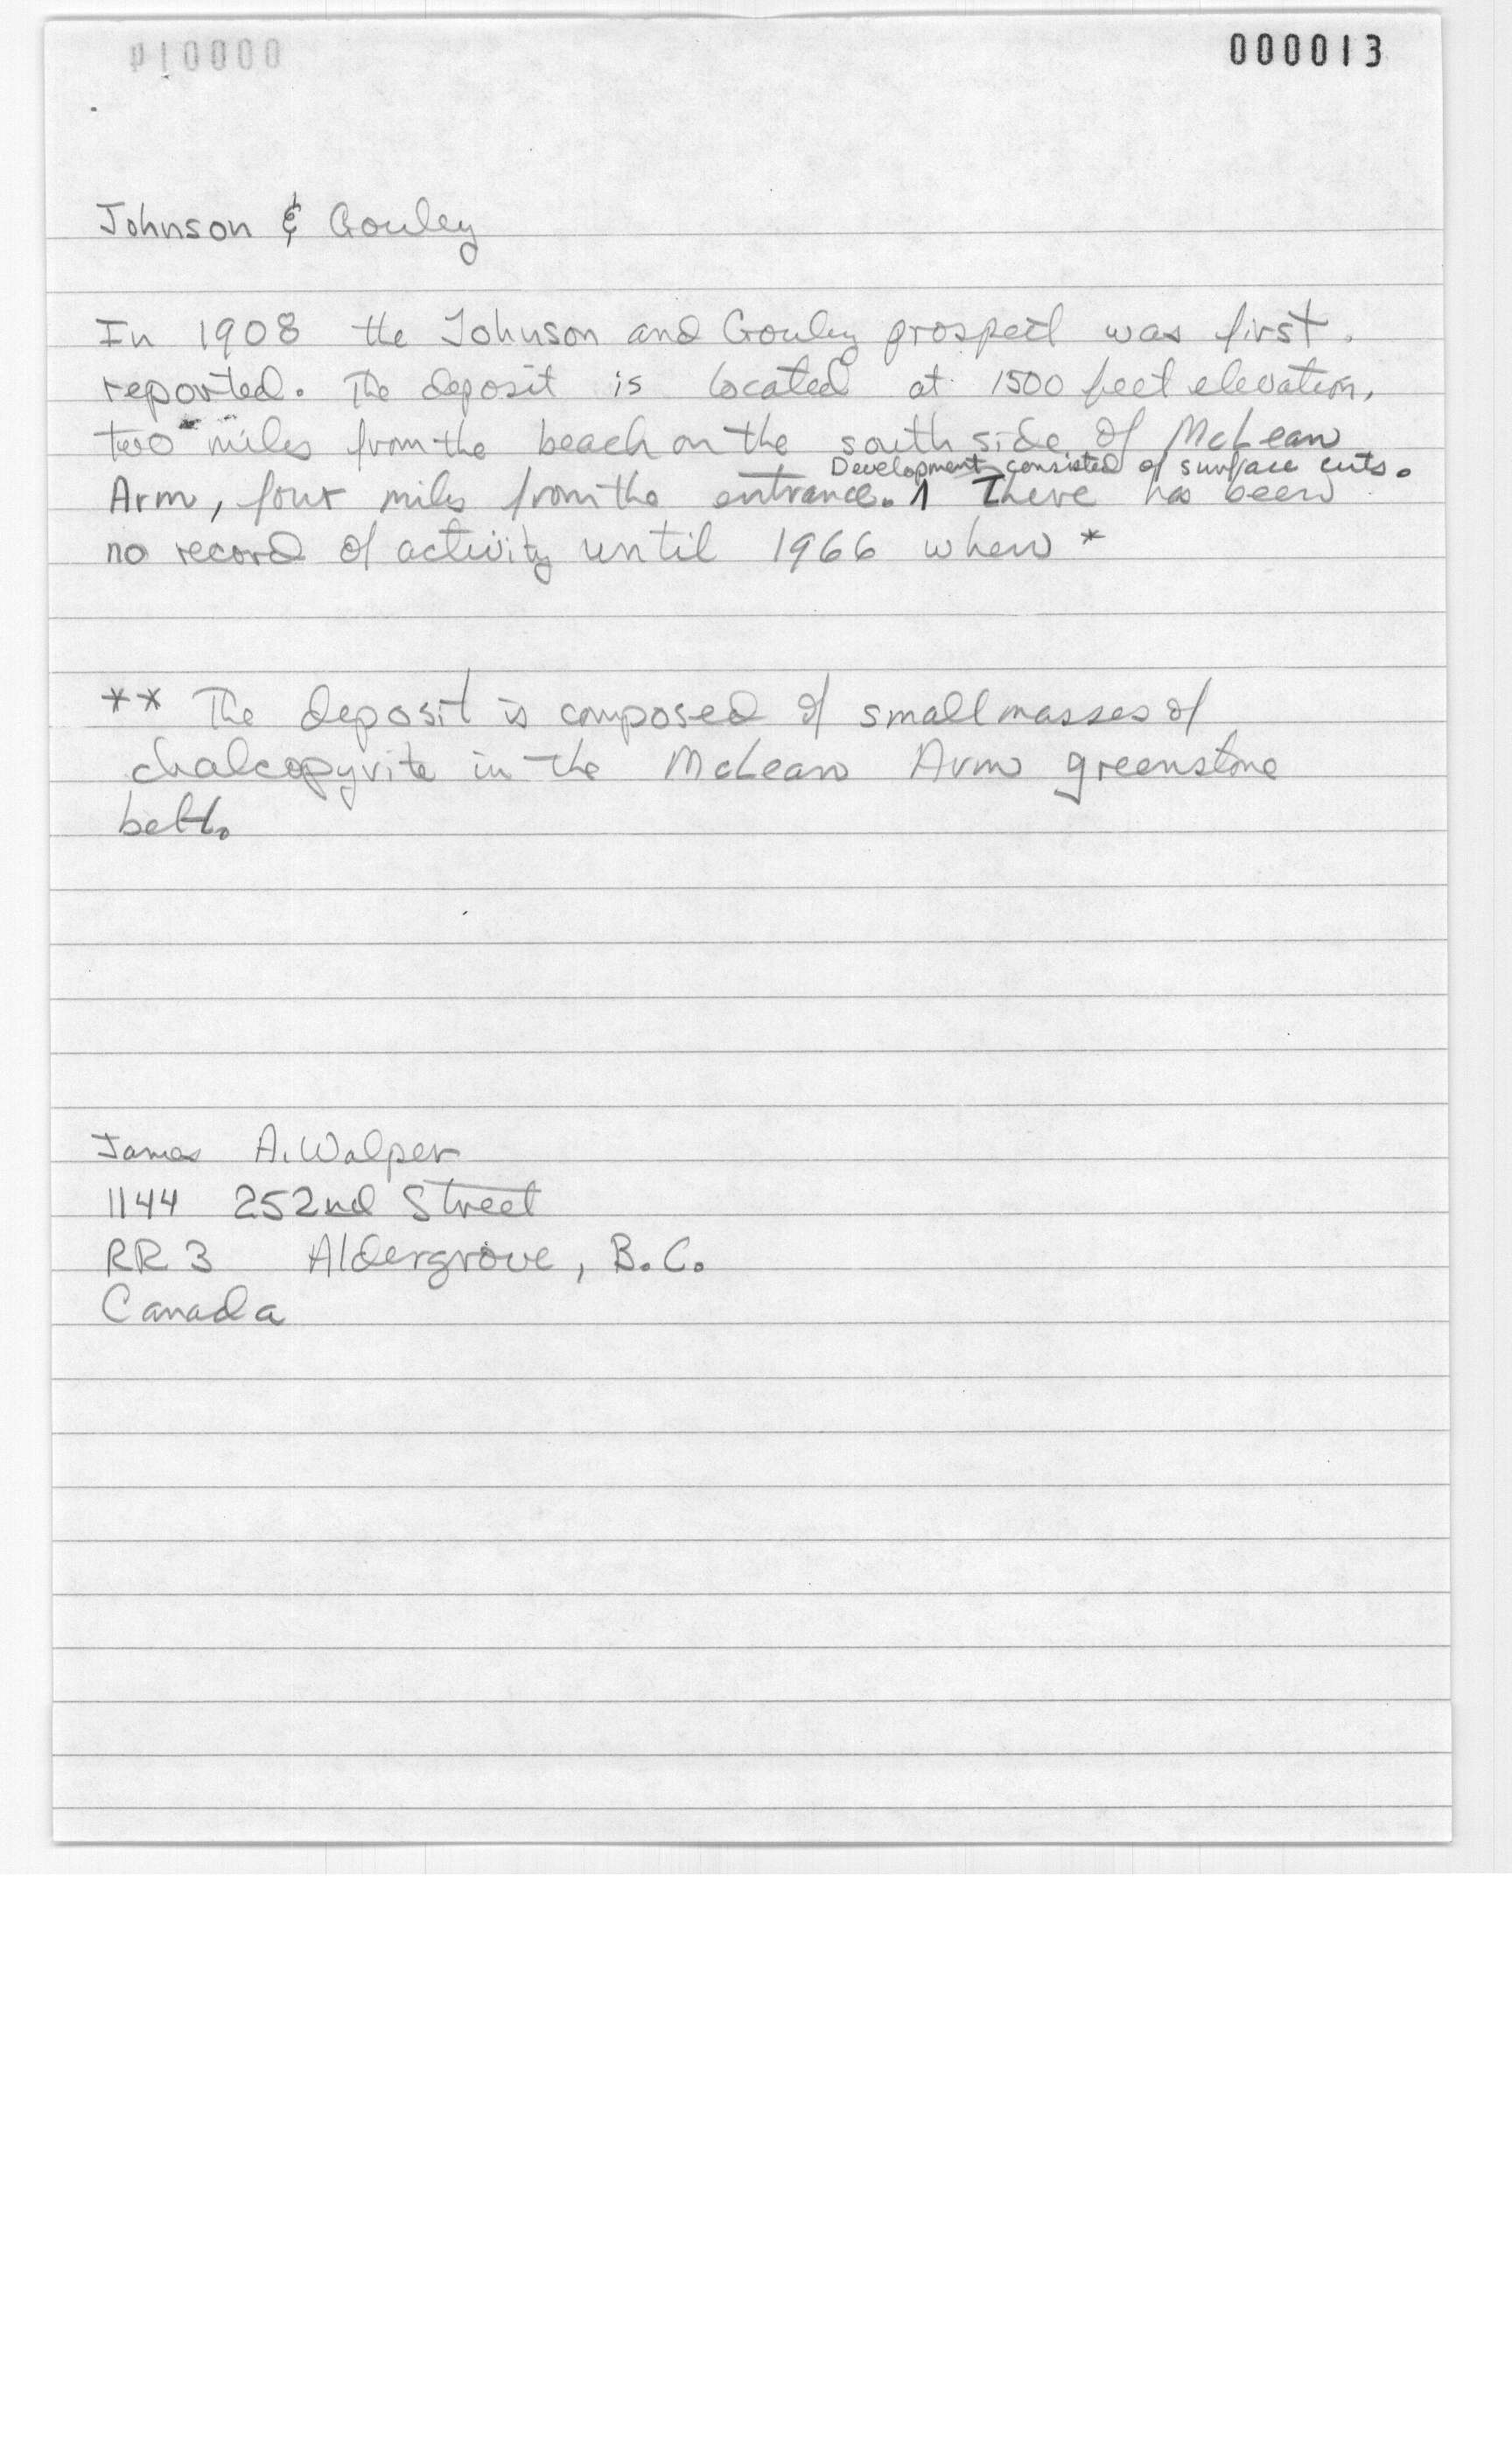 000013
Johnson & Gouley
In 1908 the Johnson and Gouley prospect was first
reported. The deposit is located at 1500 feet elevation,
two miles from the beach on the south side of McLean
Development consisted of surface cuts.
Arm, four miles from the entrance. ∧ There has been
no record of activity until 1966 when *
** The deposit is composed of small masses of
chalcopyrite in the McLean Arm greenstone
belt.
James A. Walper
1144 252nd Street
RR 3 Aldergrove, B.C.
Canada